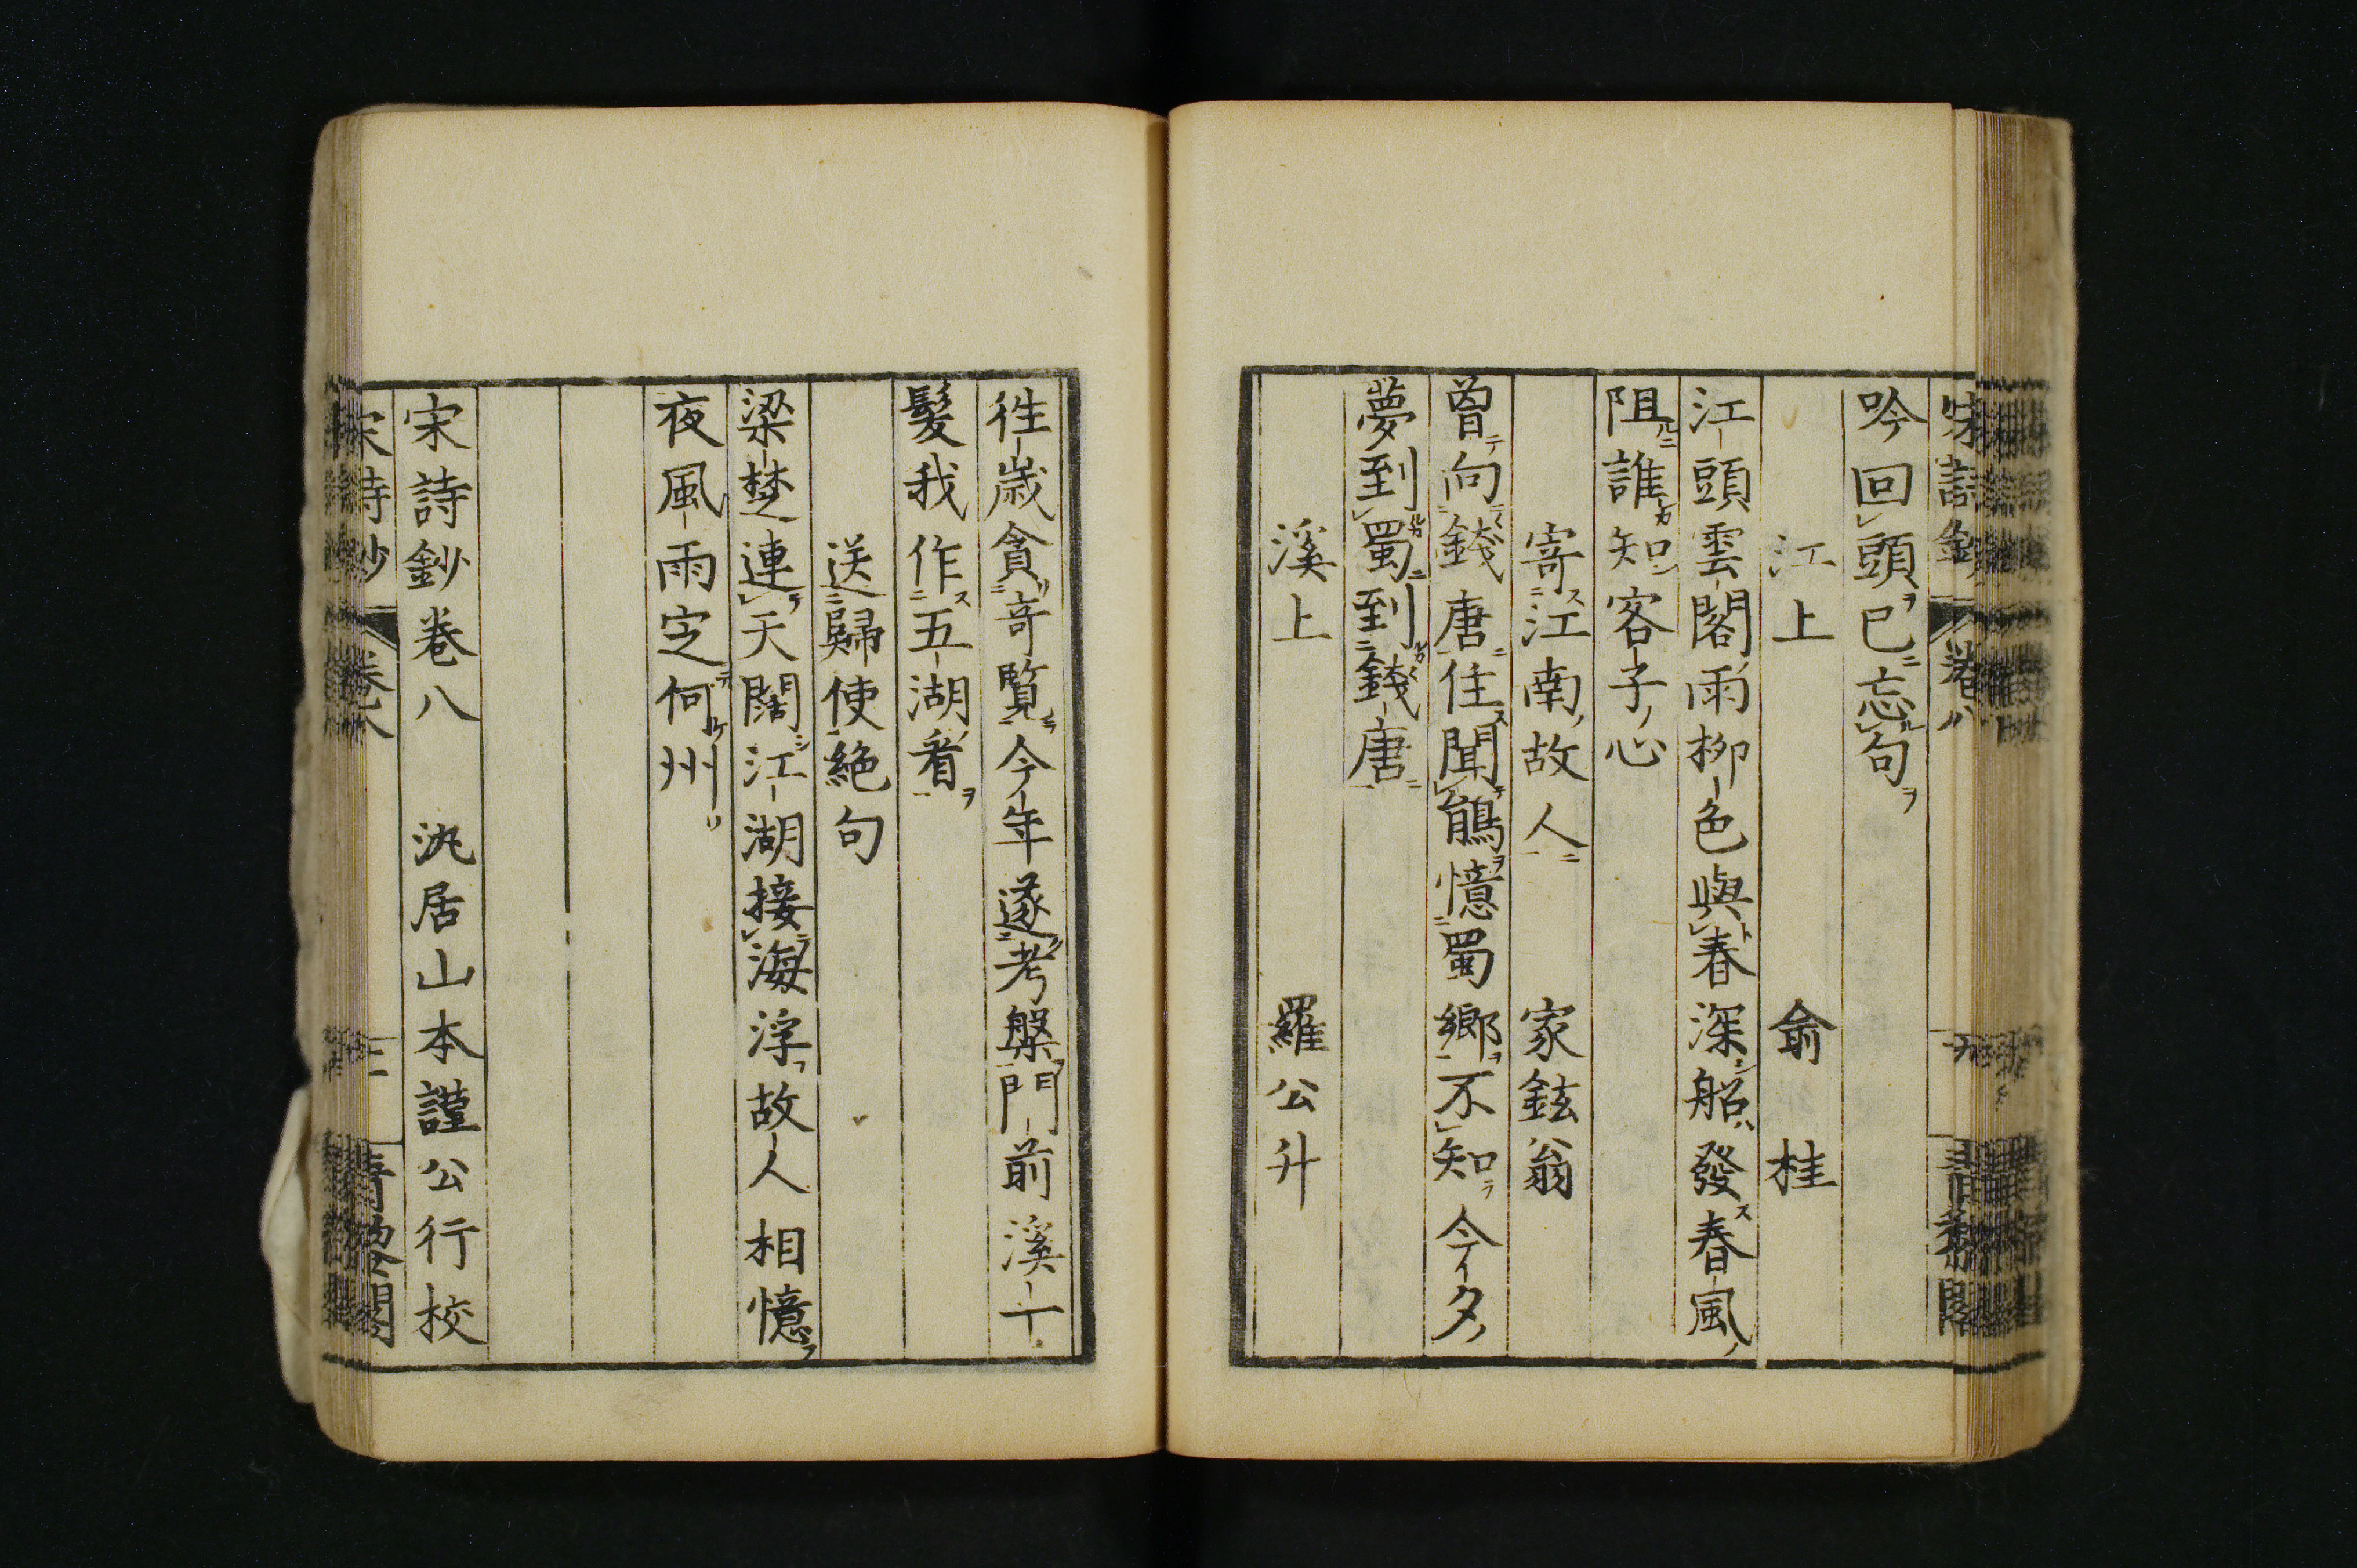 宋詩鈔 卷八
吟回頭已忘句
江上 俞桂
江頭雲閣雨柳色與春深船發春風
阻誰知客子心
寄江南故人 家鉉翁
曾向錢唐住聞鵑憶蜀鄉不知今夕
夢到蜀到錢唐
溪上 羅公升
徃歲貪奇覽今年遂考槃門前溪一
髮我作五湖看
送歸使絶句
梁楚連天闊江湖接海浮故人相憶
夜風雨定何州
宋詩鈔卷八 居山本謹公行校
宋詩鈔 卷八